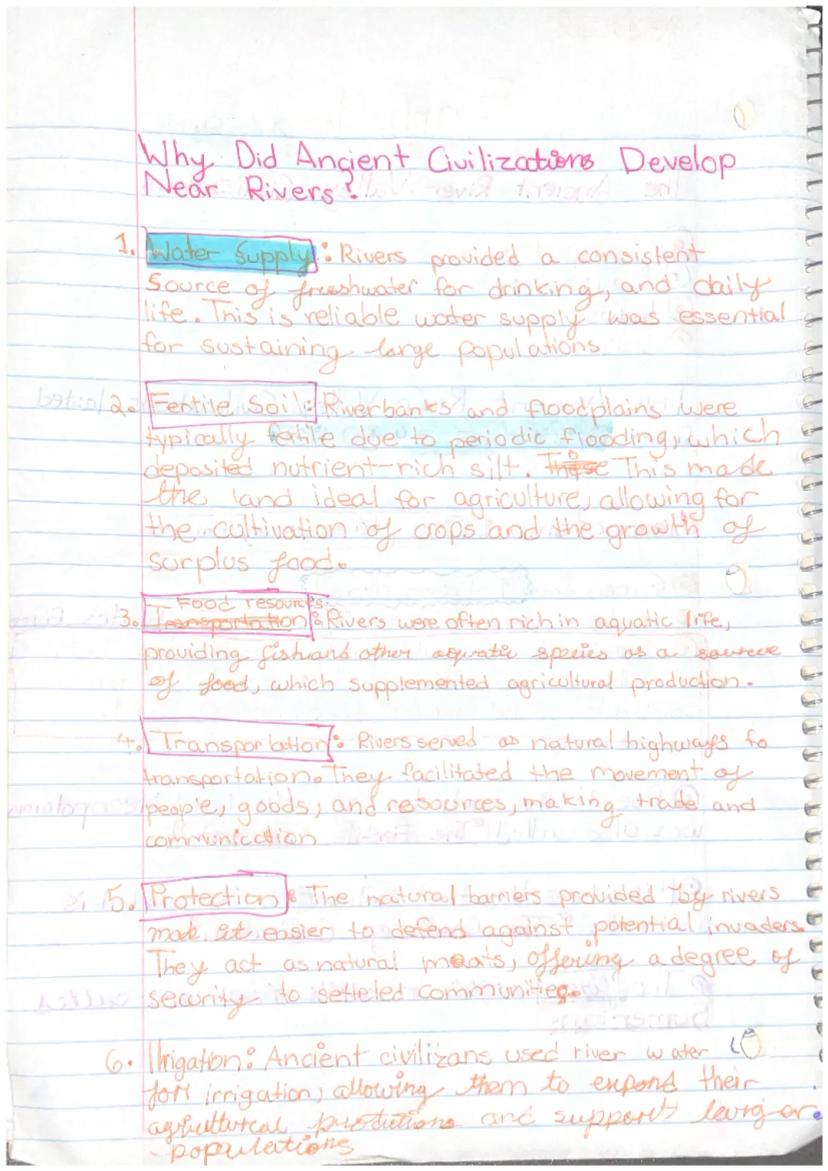 Why Did Ancient Civilizations Develop
Near Rivers?
1. Water Supply: Rivers provided a consistent
Source of freeshwater for drinking, and daily
life. This is reliable water supply was essential
for sustaining large populations
2. Fertile Soil: Riverbanks and floodplains were
typically fertile due to periodic flooding, which
deposited nutrient-rich silt. This made
the land ideal for agriculture, allowing for
the cultivation of crops and the growth of
surplus food.
Food resources
3. Transportation: Rivers were often rich in aquatic life,
providing fish and other aquatic species as a source
of food, which supplemented agricultural production.
4. Transportation: Rivers served as natural highways fo
transportation. They facilitated the movement of
people, goods, and resources, making trade and
communication
5. Protection: The natural barriers provided by rivers
made it easier to defend against potential invaders.
They act as natural moats, offering a degree of
security to setleled communities.
6. Irrigation: Ancient civilizans used river water
for irrigation, allowing them to expand their
agricultural productions and support larger
populations